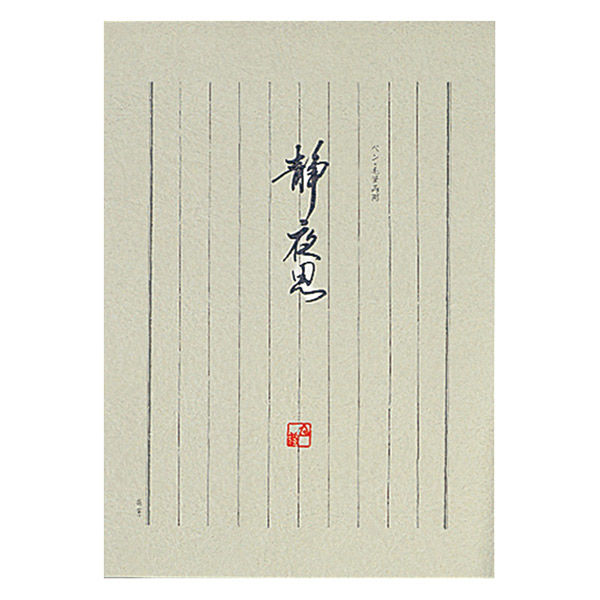 ペン・毛筆両用
静夜思